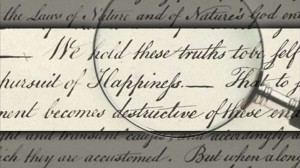 the Laws of Nature and of Nature's God en
— We hold these truths to be self
pursuit of Happiness. — That to
ment becomes destructive of these en
and transient causes; and accordingly
ich they are accustomed. But when a long